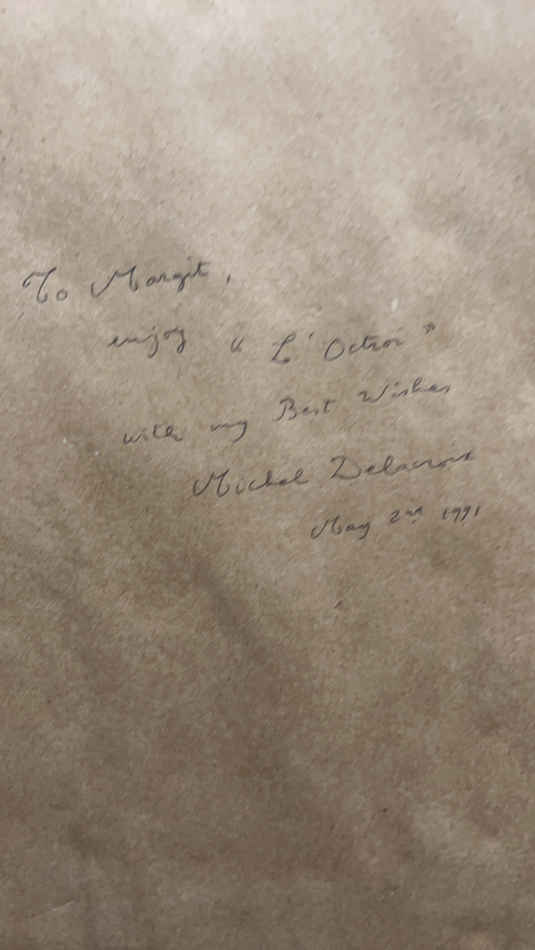 To Margit,
enjoy "L'Octroi"
with my Best Wishes
Michel Delacroix
May 2nd 1991